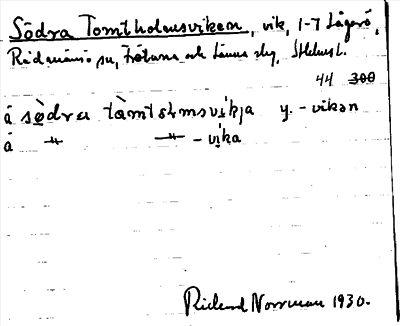 Södra Tomtholmsviken, vik, 1-7 Lågarö,
Rådmansö sn, Frötuna och Länna skg, Sthlms l.
44 300
å södra tàmtɷmsvikja y. -vikan
å -"- -"- -vika
Rickard Norrman 1930.